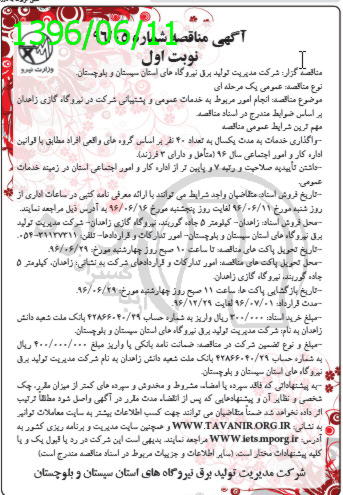 1396/06/11
آگهی مناقصه شماره ۹۶/۰۵
نوبت اول
وزارت نیرو
مناقصه گزار: شرکت مدیریت تولید برق نیروگاه های استان سیستان و بلوچستان.
نوع مناقصه: عمومی یک مرحله ای
موضوع مناقصه: انجام امور مربوط به خدمات عمومی و پشتیبانی شرکت در نیروگاه گازی زاهدان
بر اساس ضوابط مندرج در اسناد مناقصه.
مهم ترین شرایط عمومی مناقصه
-واگذاری خدمات به مدت یکسال به تعداد ۴۰ نفر بر اساس گروه های واقعی افراد مطابق با قوانین
اداره کار و امور اجتماعی سال ۹۶ (متأهل و دارای ۳ فرزند).
-داشتن تأییدیه صلاحیت و رتبه ۷ و پایین تر از اداره کار و امور اجتماعی استان در زمینه خدمات
عمومی.
-تاریخ فروش اسناد: متقاضیان واجد شرایط می توانند با ارائه معرفی نامه کتبی در ساعات اداری از
روز شنبه مورخ ۹۶/۰۶/۱۱ لغایت روز پنجشنبه مورخ ۹۶/۰۶/۱۶ به آدرس ذیل مراجعه نمایند.
-محل فروش اسناد: زاهدان- کیلومتر ۵ جاده گوربند، نیروگاه گازی زاهدان- شرکت مدیریت تولید
برق نیروگاه های استان سیستان و بلوچستان- امور تدارکات و قراردادها- تلفن: ۳۱۱۳۷۳۱۱-۰۵۴
-تاریخ تحویل پاکت های مناقصه: تا ساعت ۱۰ صبح روز چهارشنبه مورخ ۹۶/۰۶/۲۹.
-محل تحویل پاکت های مناقصه: امور تدارکات و قراردادهای شرکت به نشانی: زاهدان، کیلومتر ۵
جاده گوربند، نیروگاه گازی زاهدان.
-تاریخ بازگشایی پاکت ها: ساعت ۱۱ صبح روز چهارشنبه مورخ ۹۶/۰۶/۲۹.
-مدت قرارداد: ۹۶/۰۷/۰۱ لغایت ۹۶/۱۲/۲۹
-مبلغ خرید اسناد: ۳۰۰/۰۰۰ ریال واریز به شماره حساب ۴۲۸۶۶۰۴۰/۲۹ بانک ملت شعبه دانش
زاهدان به نام: شرکت مدیریت تولید برق نیروگاه های استان سیستان و بلوچستان.
-مبلغ و نوع تضمین شرکت در مناقصه: ضمانت نامه بانکی یا واریز مبلغ ۴۰۰/۰۰۰/۰۰۰ ریال
به شماره حساب ۴۲۸۶۶۰۴۰/۲۹ بانک ملت شعبه دانش زاهدان به نام شرکت مدیریت تولید برق
نیروگاه های استان سیستان و بلوچستان.
-به پیشنهاداتی که فاقد سپرده یا امضاء، مشروط و مخدوش و سپرده های کمتر از میزان مقرر، چک
شخصی و نظایر آن و پیشنهادهایی که پس از انقضاء مدت مقرر در آگهی واصل شود مطلقاً ترتیب
اثر داده نخواهد شد. ضمناً متقاضیان می توانند جهت کسب اطلاعات بیشتر به سایت معاملات توانیر
به نشانی: WWW.TAVANIR.ORG.IR و همچنین سایت مدیریت و برنامه ریزی کشور به
آدرس: WWW.iets.mporg.ir مراجعه نمایند. بدیهی است این شرکت در رد یا قبول یک و یا
کلیه پیشنهادات مختار است. (سایر اطلاعات و جزییات مربوط در اسناد مناقصه مندرج است)
شرکت مدیریت تولید برق نیروگاه های استان سیستان و بلوچستان